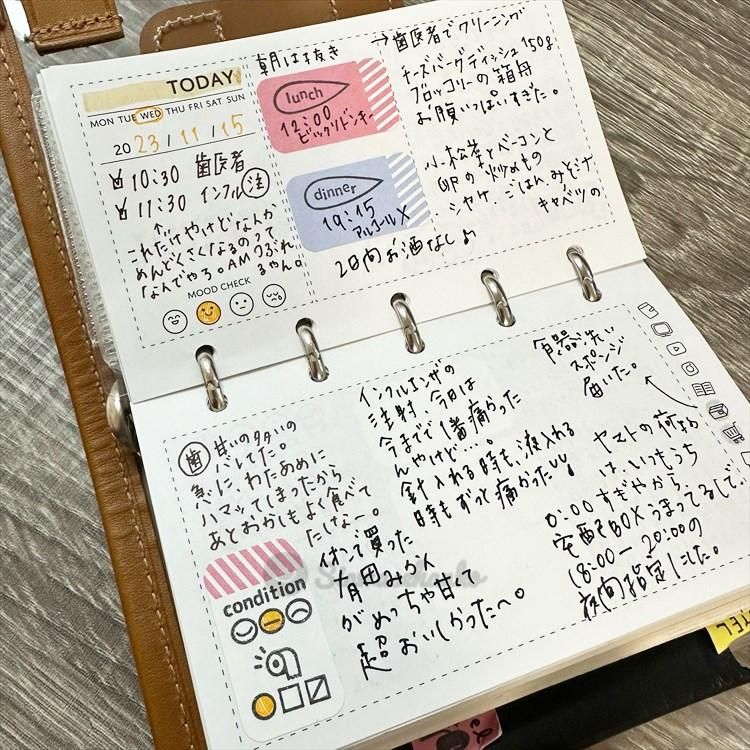 TODAY
MON TUE WED THU FRI SAT SUN
20 23 / 11 / 15
10:30 歯医者
11:30 インフル 注
↑
これだけやけどなんか
めんどくさくなるのって
なんでやろ。AMつぶれ
るやん。
MOOD CHECK
朝はヌキ
lunch
12:00
ビックリドンキー
dinner
19:15
アルコール×
2日間お酒なし♪
→歯医者でクリーニング
チーズバーグディッシュ150g
ブロッコリーの箱舟
お腹いっぱいすぎた。
小松菜とベーコンと
卵の炒めもの
シャケ、ごはん、みそ汁
キャベツの
歯 甘いの多いの
バレてた。
急に、わたあめに
ハマッてしまったから
あとおかしもよく食べて
たしなー。
condition
インフルエンザの
注射、今日は
今までで1番痛かった
んやけど…。
針入れる時も、液入れる
時もずっと痛かった
イオンで買った
有田みかん
がめっちゃ甘くて
超おいしかったへ。
食器洗い
スポンジ
届いた。
ヤマトの荷物
は、いつもうち
すぎやから、
宅配BOXうまってるしで、
18:00-20:00の
夜間指定にした。